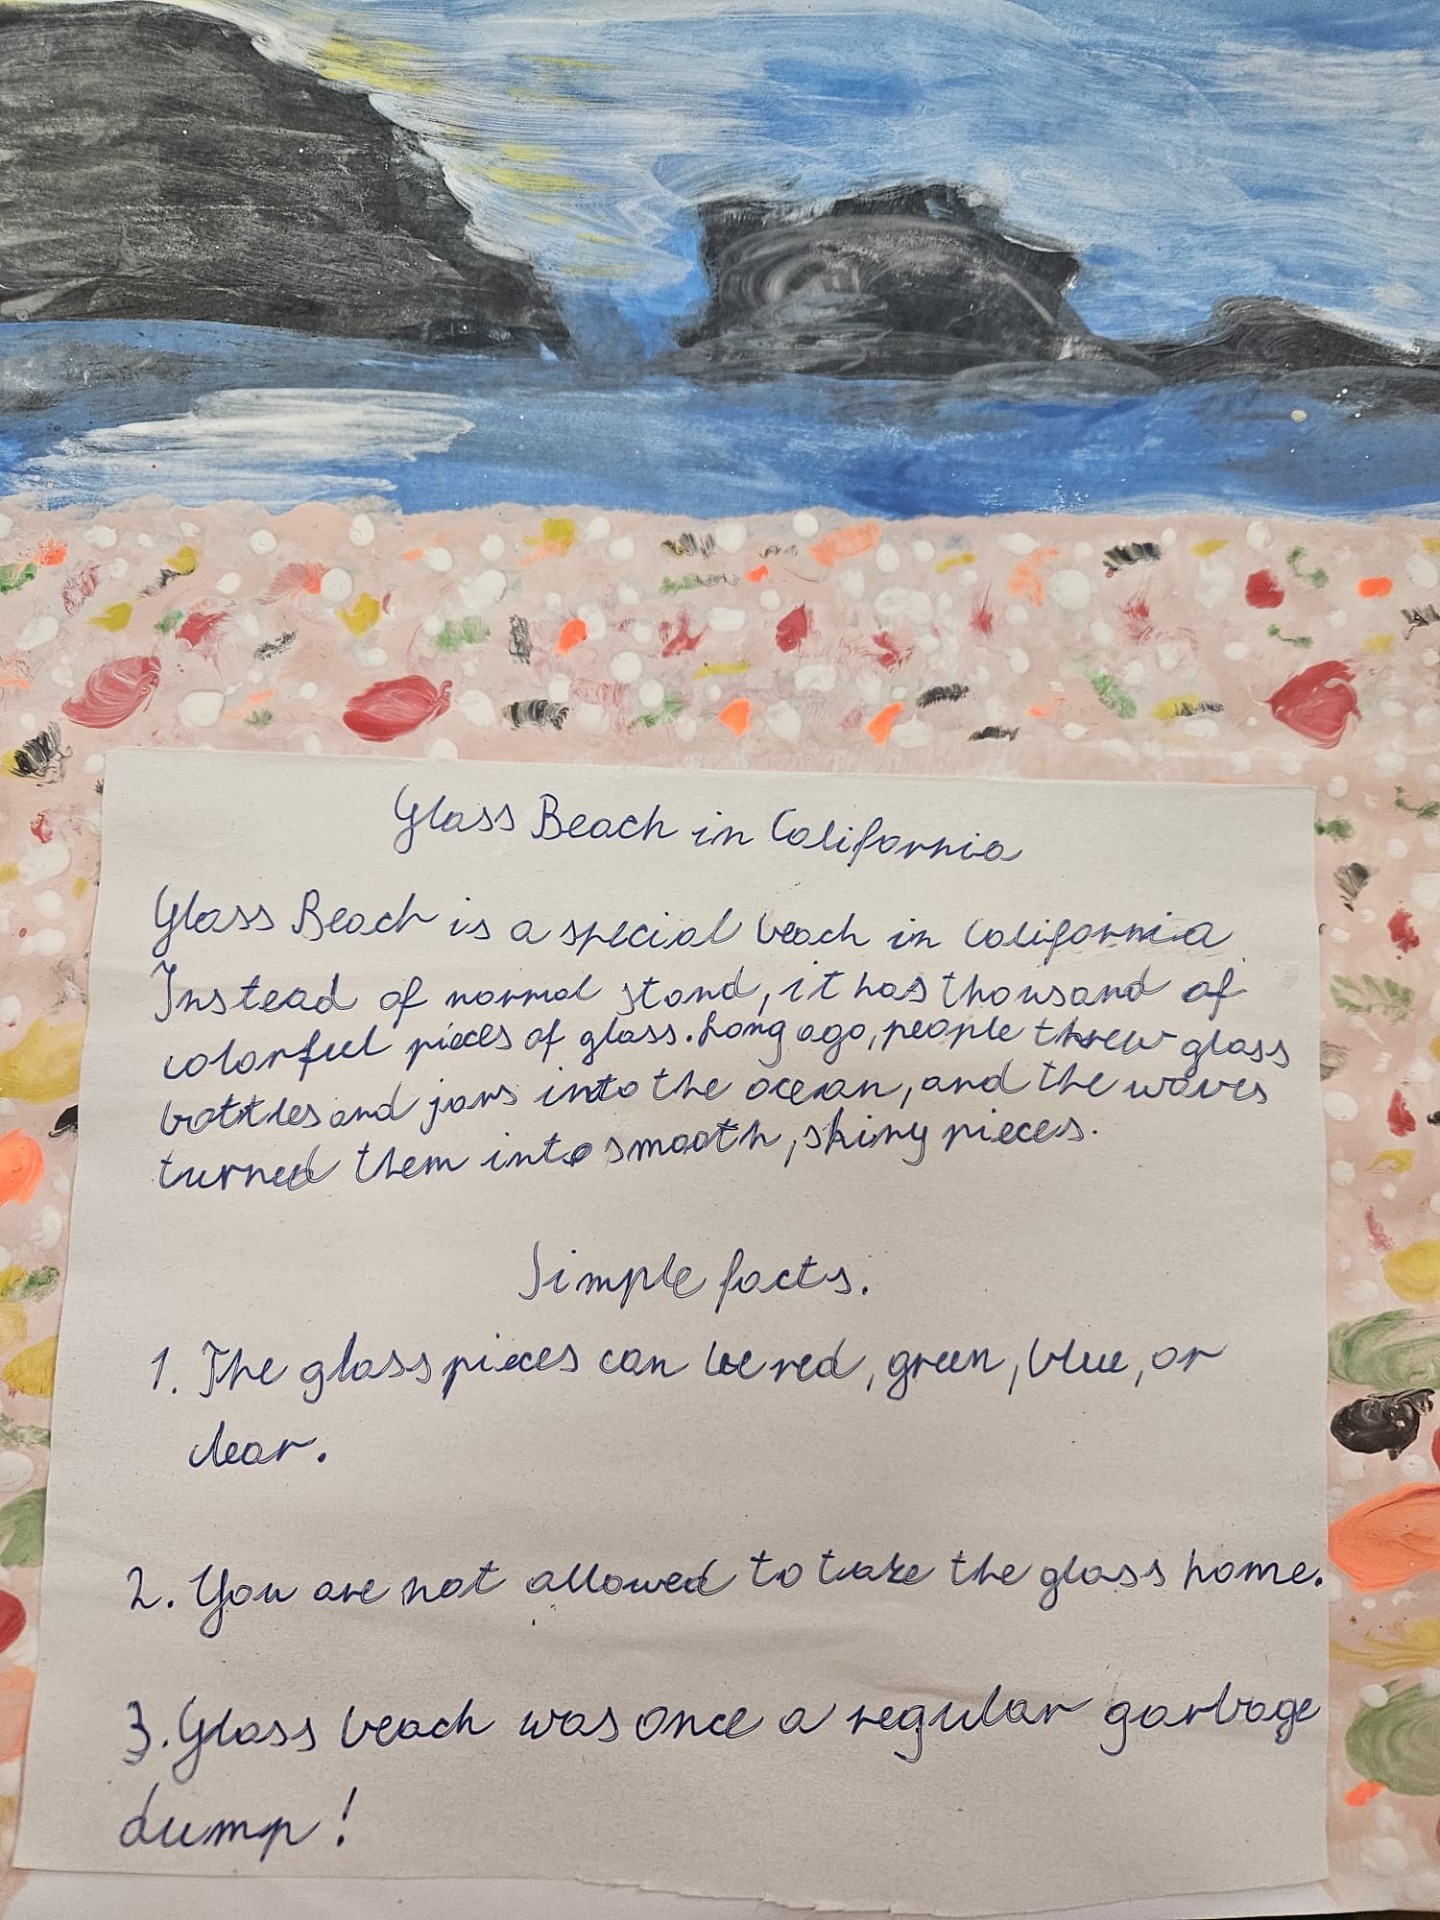 Glass Beach in California
Glass Beach is a special beach in California
Instead of normal stand, it has thousand of
colorful pieces of glass. Long ago, people threw glass
bottles and jars into the ocean, and the waves
turned them into smooth, shiny pieces.
Simple facts.
1. The glass pieces can be red, green, blue, or
clear.
2. You are not allowed to take the glass home.
3. Glass beach was once a regular garbage
dump!